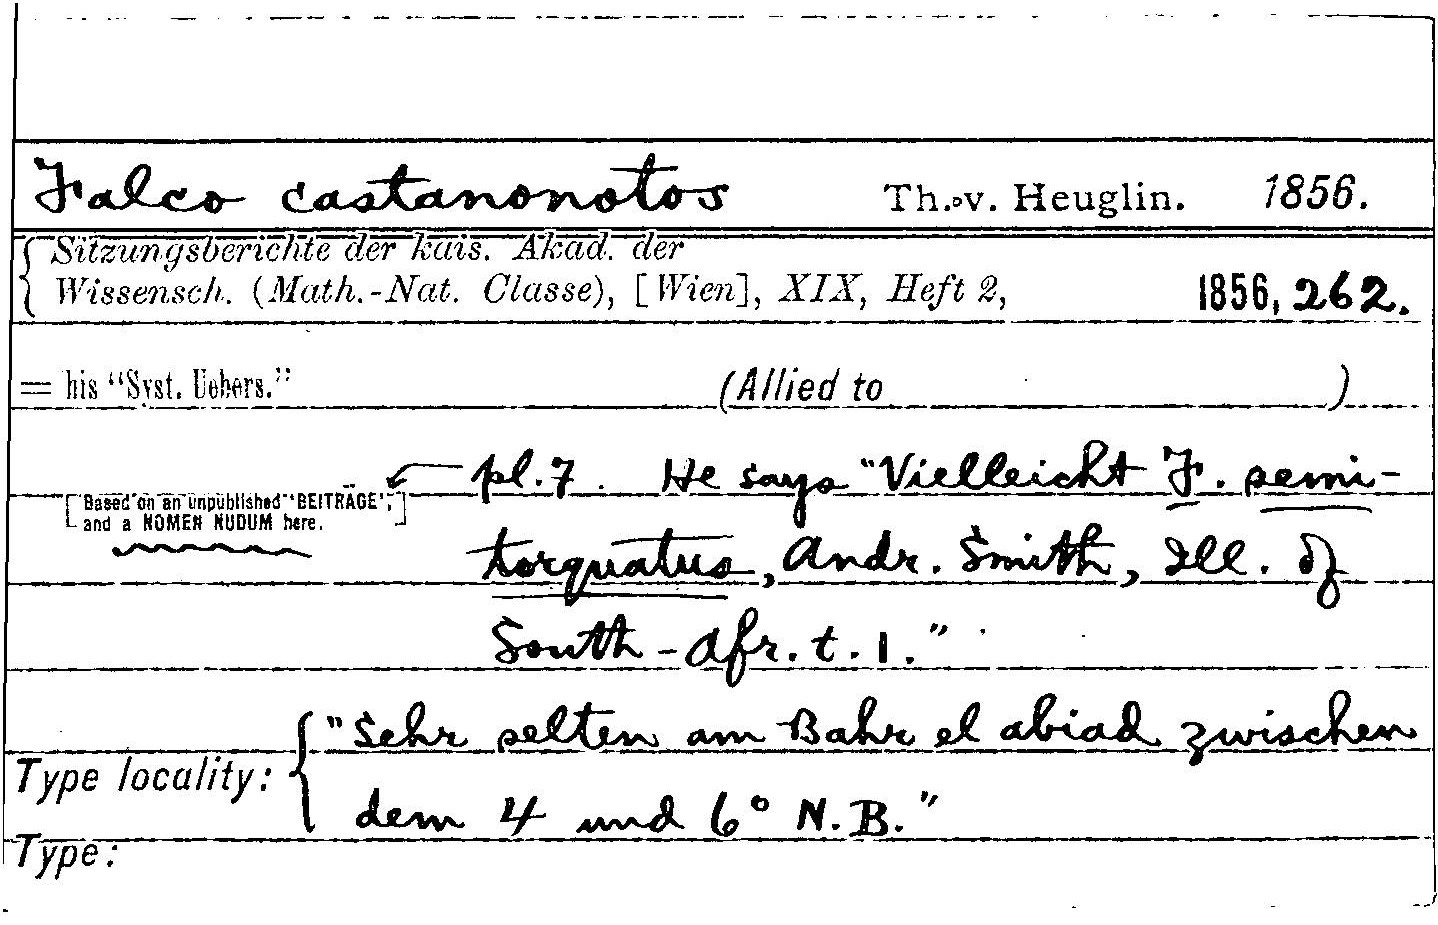 Falco castanonotos Th. v. Heuglin. 1856.
Sitzungsberichte der kais. Akad. der
Wissensch. (Math.-Nat. Classe), [Wien], XIX, Heft 2, 1856, 262.
= his "Syst. Uebers." (Allied to )
pl. 7. He says "Vielleicht F. semi-
[Based on an unpublished "BEITRÄGE";]
and a NOMEN NUDUM here.
torquatus, Andr. Smith, Ill. of
South-Afr. t. 1."
"Sehr selten am Bahr el abiad zwischen
Type locality:
dem 4 und 6° N.B."
Type: